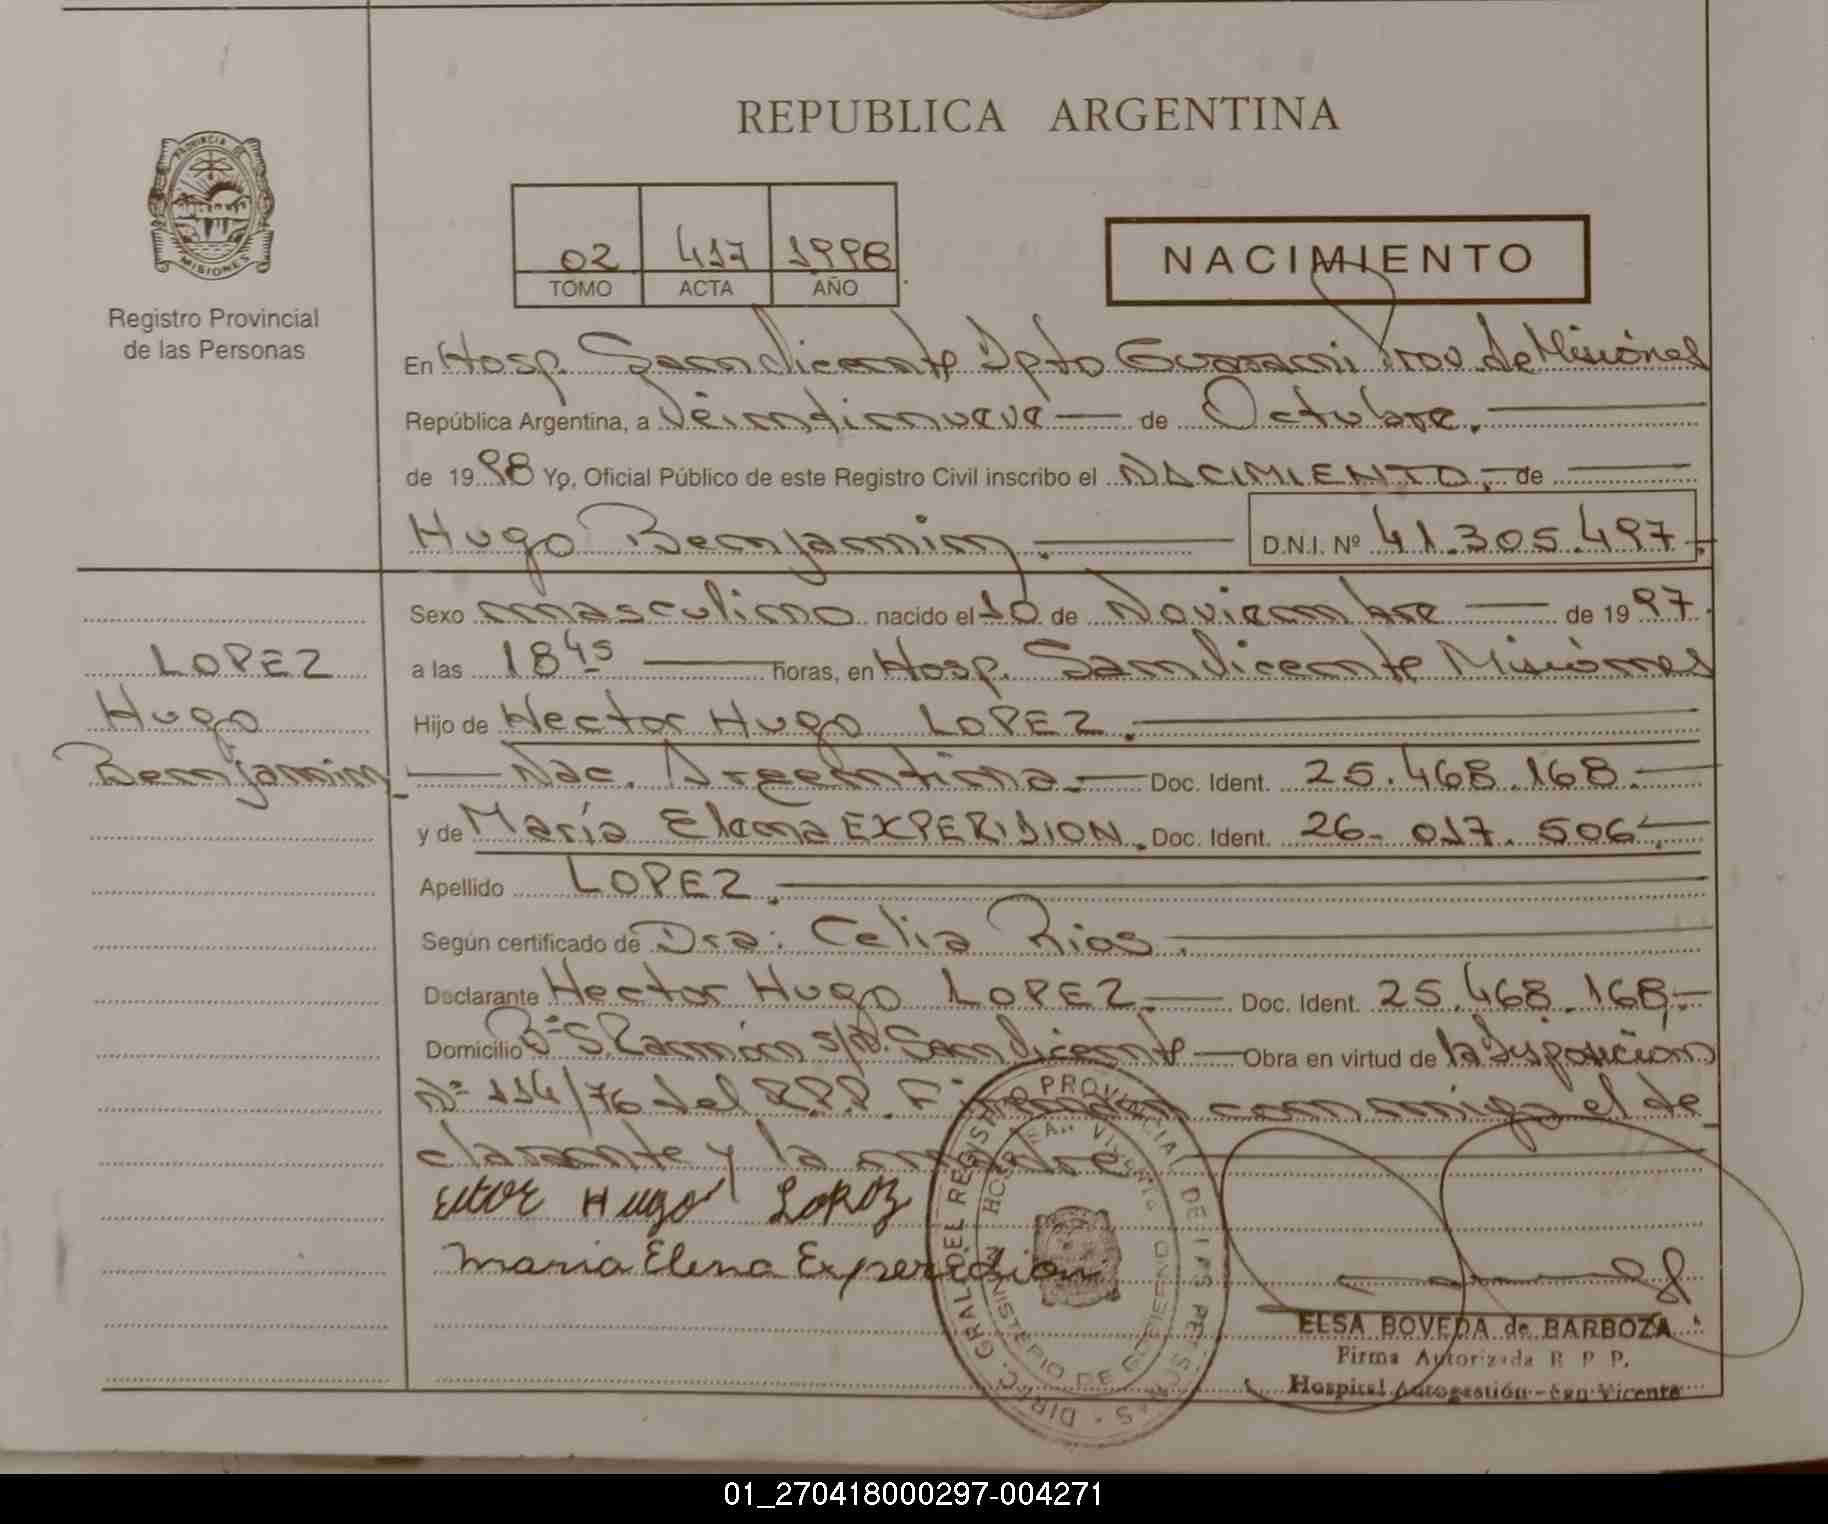 REPUBLICA ARGENTINA
PROVINCIA DE
MISIONES
Registro Provincial
de las Personas
02 417 1998
TOMO ACTA AÑO
NACIMIENTO
En Hosp. San Vicente Dpto Guarani Prov. de Misiones
República Argentina, a Veintinueve de Octubre.
de 1998 Yo, Oficial Público de este Registro Civil inscribo el NACIMIENTO, de
Hugo Benjamin. D.N.I. Nº 41.305.497.
Sexo masculino nacido el 10 de Noviembre de 1997.
a las 18 45 horas, en Hosp. San Vicente Misiones
Hijo de Hector Hugo LOPEZ.
Nac. Argentina. Doc. Ident. 25.468.168.
y de María Elena EXPERIDION. Doc. Ident. 26.017.506.
Apellido LOPEZ.
Según certificado de Dra: Celia Rios.
Declarante Hector Hugo LOPEZ. Doc. Ident. 25.468.168.
Domicilio Bº S. Ramón s/n. San Vicente Obra en virtud de la Disposicion
Nº 114/76 del R.P.P. Firman conmigo el de
clarante y la madre
LOPEZ
Hugo
Benjamin
Ector Hugo Lopez
Maria Elena Experidion
DIREC. GRAL DEL REGISTRO PROVINCIAL DE LAS PERSONAS
HOSP. SAN VICENTE
MINISTERIO DE GOBIERNO
ELSA BOVEDA de BARBOZA
Firma Autorizada R P P.
Hospital Autogestión - San Vicente
01_270418000297-004271